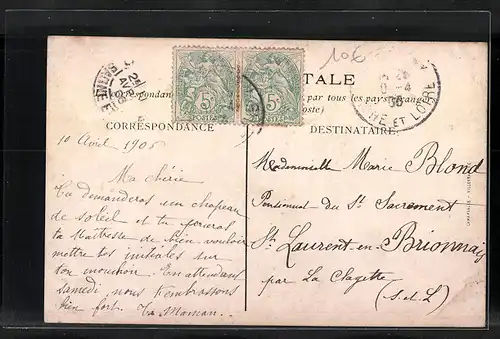 10€
TALE
par tous les pays étrangers
CORRESPONDANCE
DESTINATAIRE
5c 5c
POSTES POSTES
10 Avril 1906
Ma chérie
Tu demanderas un chapeau
de soleil et tu prieras
ta Maîtresse de bien vouloir
mettre tes initiales sur
ton mouchoir. En attendant
samedi nous t'embrassons
bien fort. Ta Maman
Mademoiselle Marie Blond
Pensionnat du St Sacrement
St Laurent-en-Brionnais
par La Clayette
(S.-et-L)
ET LOIRE